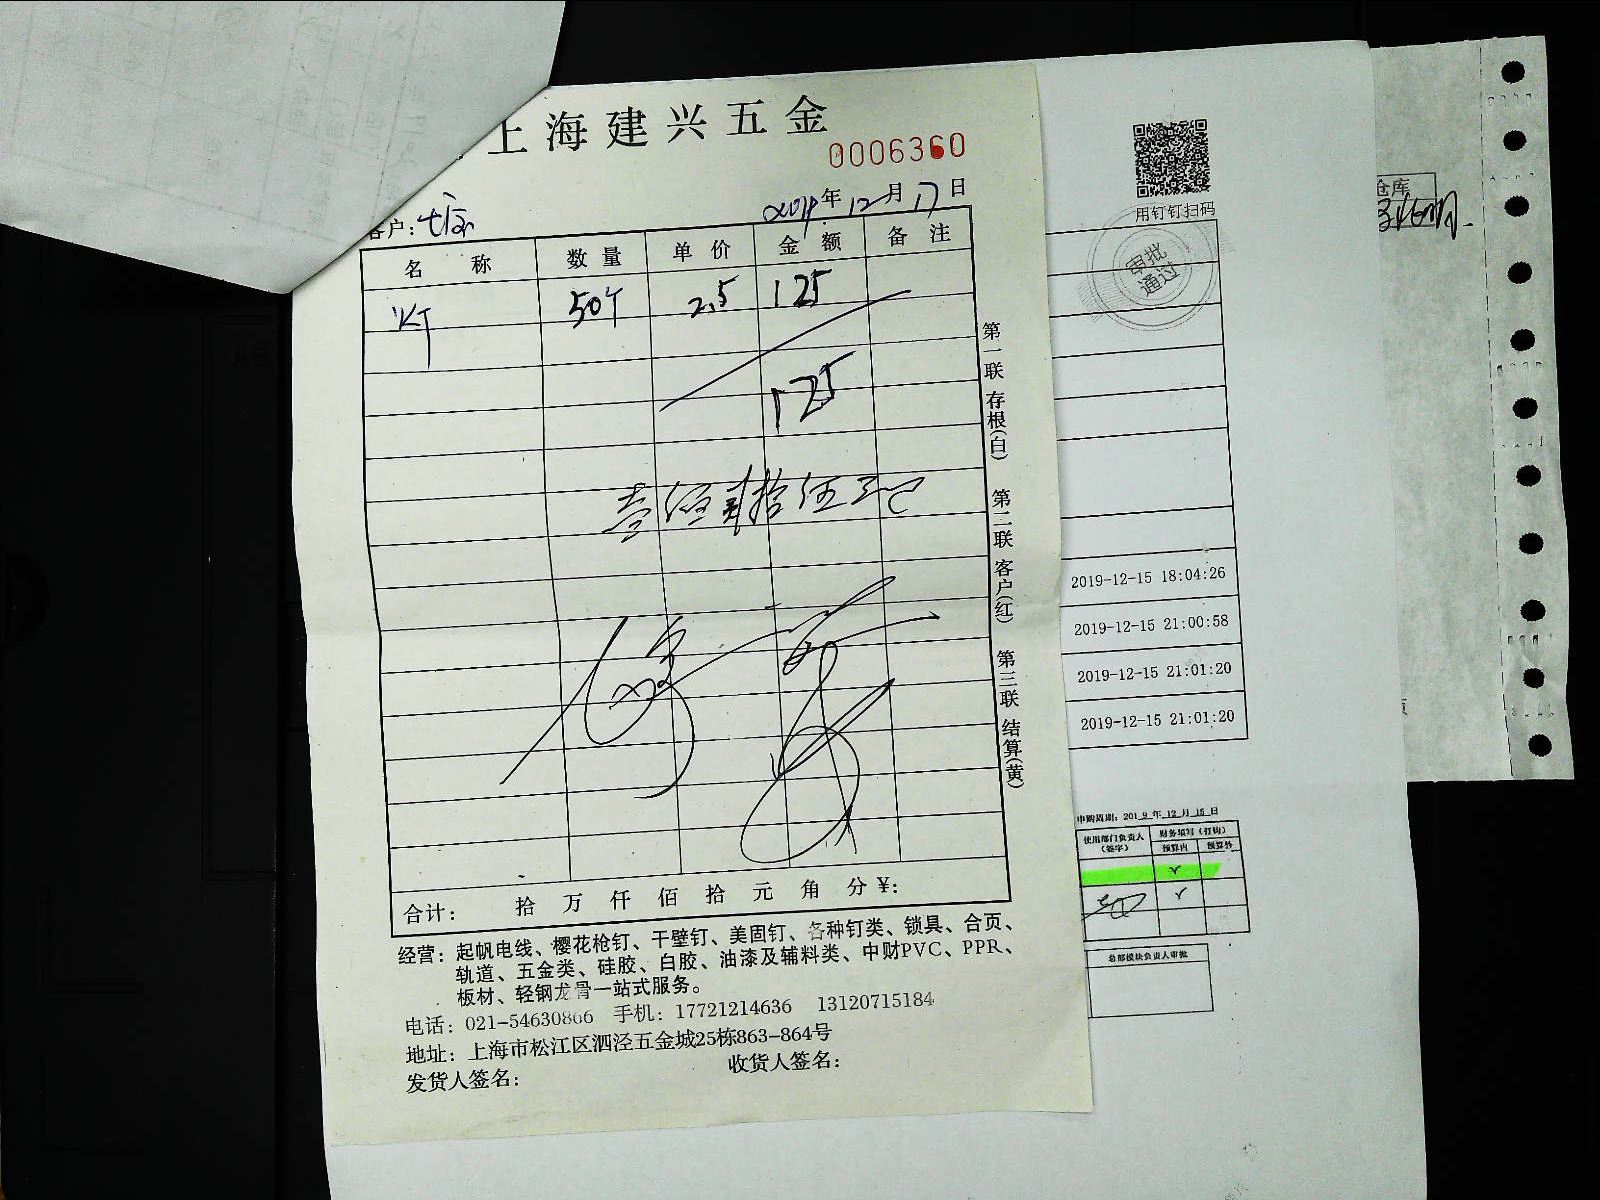 上海建兴五金
0006360
2019年12月17日
客户:
名 称 数 量 单 价 金 额 备 注
50个 2.5 125
125
壹佰贰拾伍元
第一联 存根(白) 第二联 客户(红) 第三联 结算(黄)
合计: 拾 万 仟 佰 拾 元 角 分 ¥:
经营: 起帆电线、樱花枪钉、干壁钉、美固钉、各种钉类、锁具、合页、
轨道、五金类、硅胶、白胶、油漆及辅料类、中财PVC、PPR、
板材、轻钢龙骨一站式服务。
电话: 021-54630866 手机: 17721214636 13120715184
地址: 上海市松江区泗泾五金城25栋863-864号
发货人签名: 收货人签名:
用钉钉扫码
审批
通过
2019-12-15 18:04:26
2019-12-15 21:00:58
2019-12-15 21:01:20
2019-12-15 21:01:20
申购周期: 2019年12月15日
使用部门负责人
(签字)
财务填写(打钩)
预算内 预算外
总部模块负责人审批
仓库